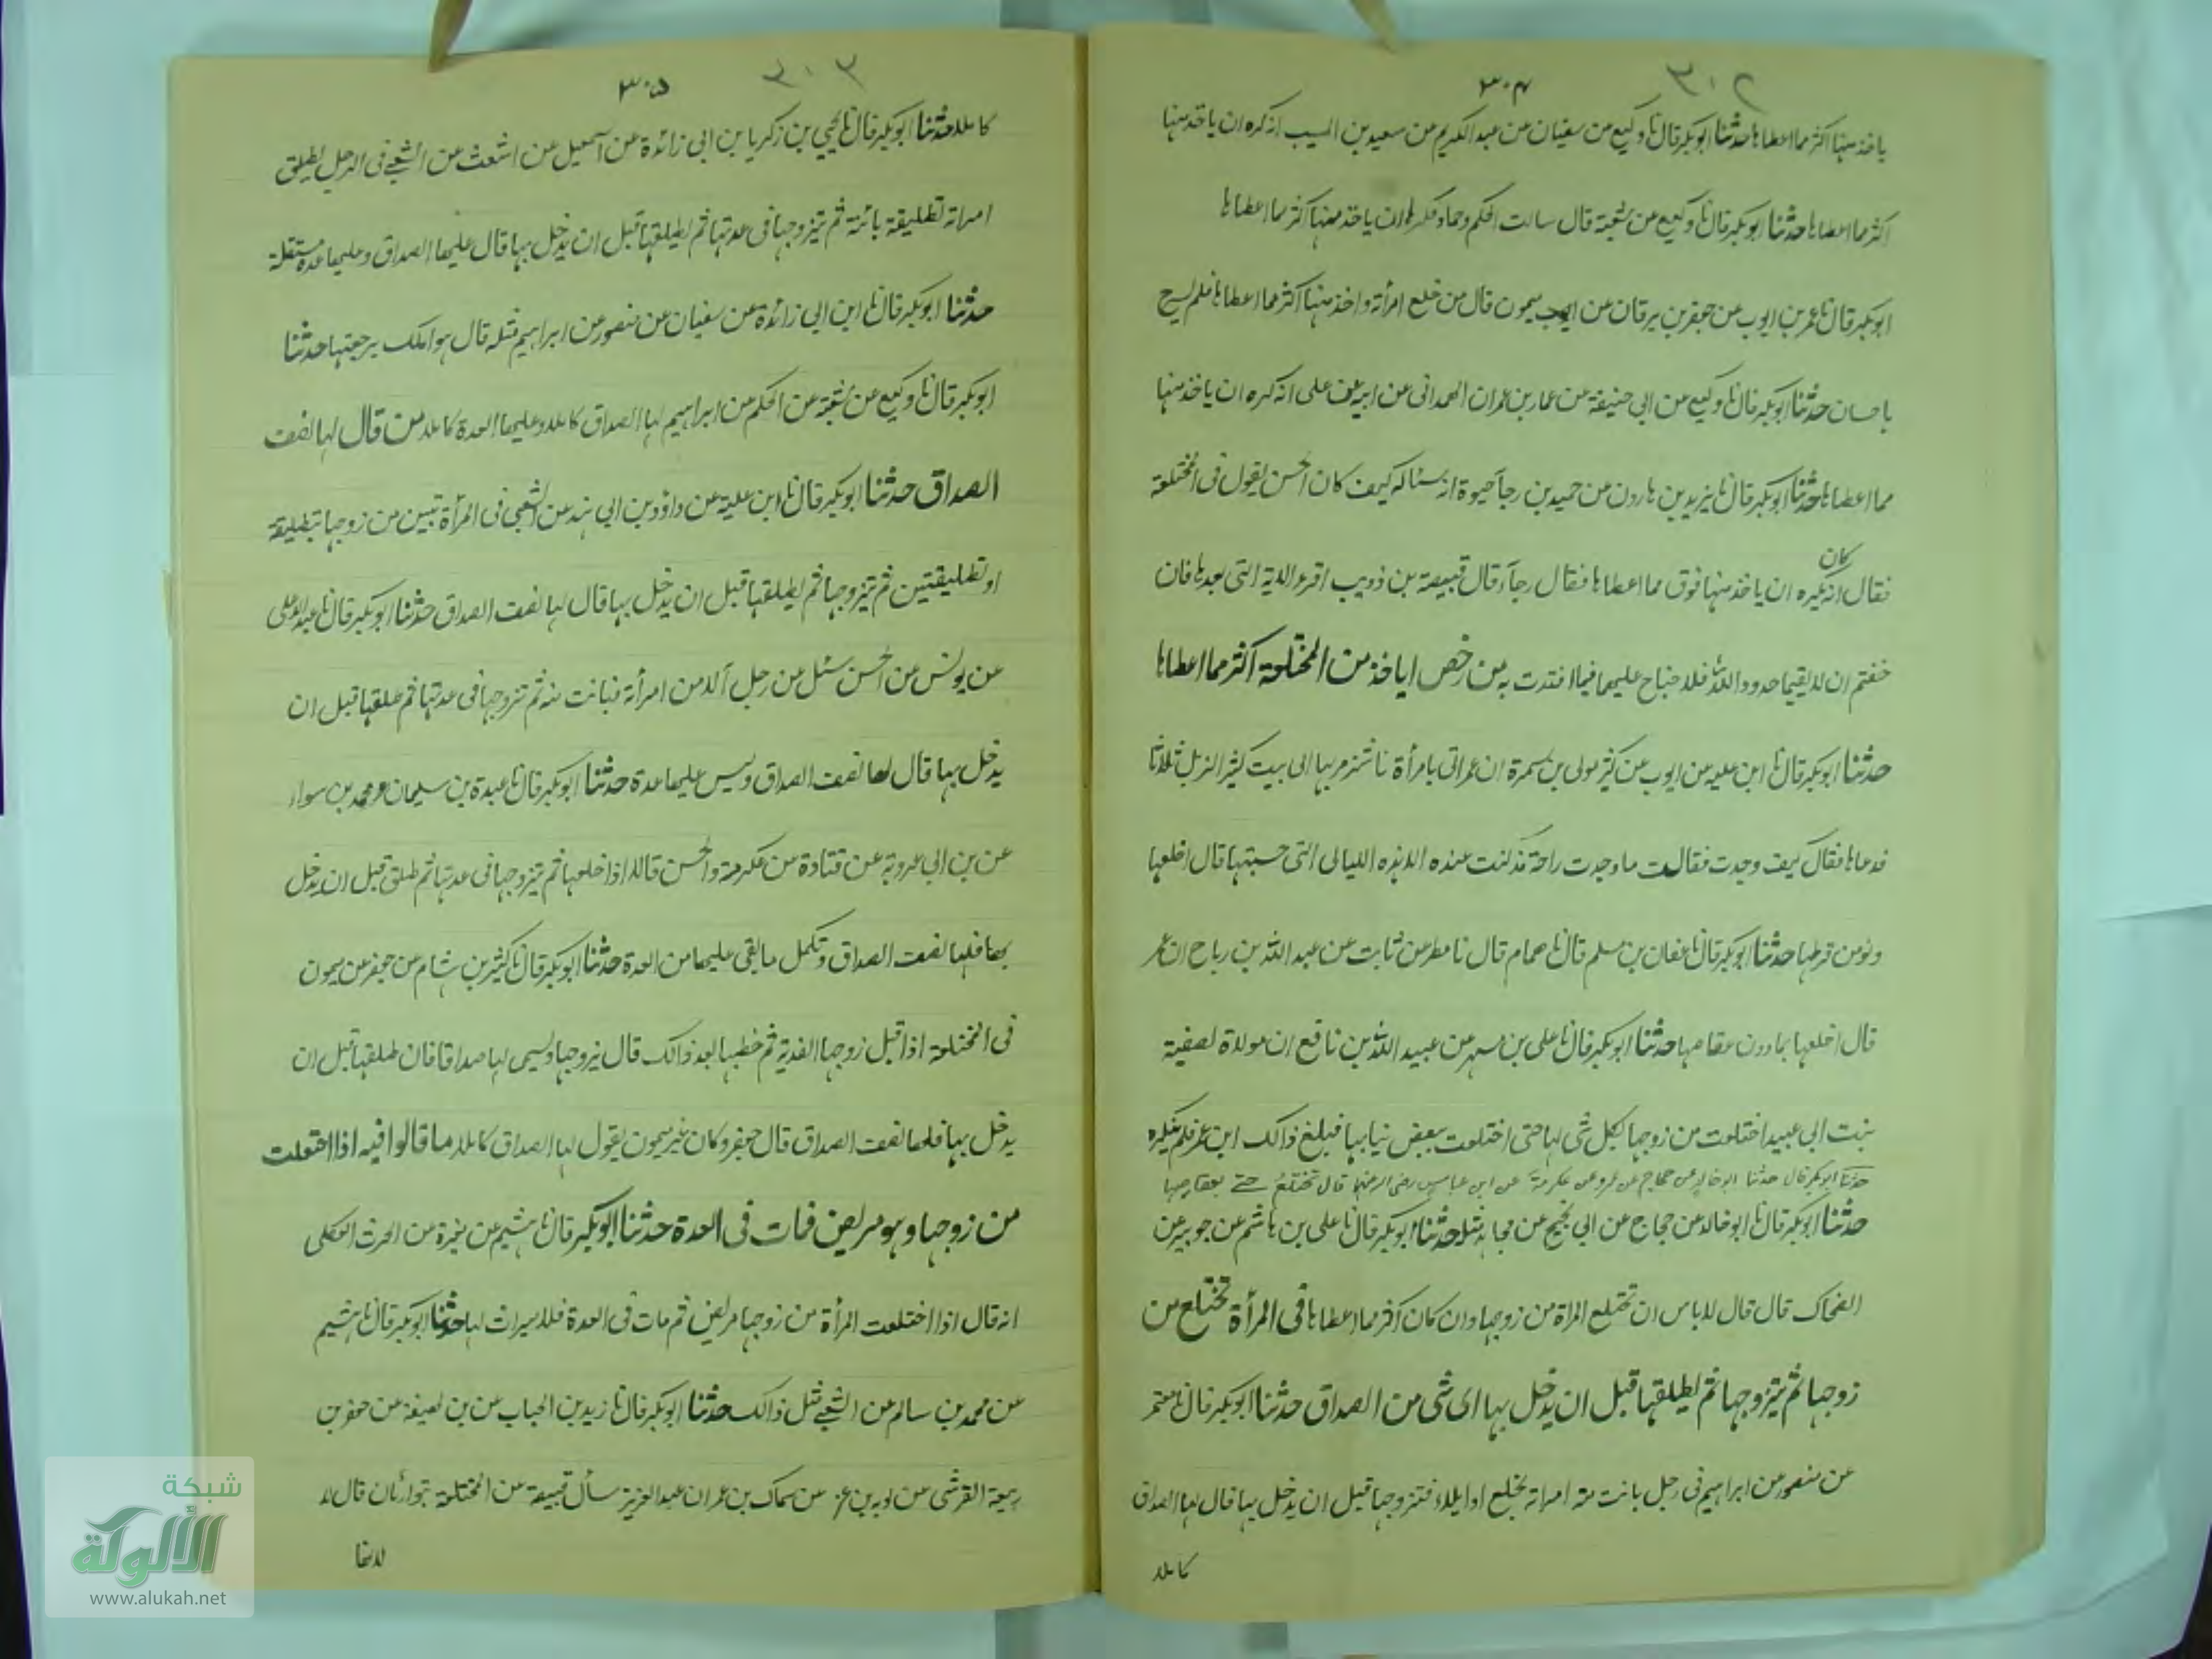 ٣٠٢
٣٠٤
ياخذ منها اكثر مما اعطاها حدثنا ابو بكر قال نا وكيع عن سفيان عن عبد الكريم عن سعيد بن المسيب انه كره ان ياخذ منها
اكثر مما اعطاها حدثنا ابو بكر قال نا وكيع عن شعبة قال سالت الحكم وحماد فكرها ان ياخذ منها اكثر مما اعطاها
ابو بكر قال نا عمر بن ايوب عن جعفر بن برقان عن ميمون قال من خلع امرأته واخذ منها اكثر مما اعطاها فلم يسرح
باحسان حدثنا ابو بكر قال نا وكيع عن ابي حنيفة عن عمار بن عمران الهمداني عن ابيه عن علي انه كره ان ياخذ منها
مما اعطاها حدثنا ابو بكر قال نا يزيد بن هارون عن حميد بن رجاء حيوة انه سئاله كيف كان الحسن يقول في المختلعة
كان
فقال انه يكره ان ياخذ منها فوق مما اعطاها فقال رجاء قال قبيصة بن ذويب اقرء الاية التي بعدها فان
خفتم ان لا يقيما حدود الله فلا جناح عليهما فيما افتدت به من رخص اياخذ من المختلعة اكثر مما اعطاها
حدثنا ابو بكر قال نا ابن علية عن ايوب عن كثير مولى بن سمرة ان عمر اتي بامرأة ناشز مر بها الى بيت كثير الزبل ثلاثا
فدعاها فقال كيف وجدت فقالت ما وجدت راحة مذ كنت عنده الا هذه الليالي التي حبستها قال اخلعها
ولو من قرطها حدثنا ابو بكر قال نا عفان بن مسلم قال نا همام قال نا مطر عن ثابت عن عبد الله بن رباح ان عمر
قال اخلعها بما دون عقاصها حدثنا ابو بكر قال نا علي بن مسهر عن عبيد الله بن نافع ان مولاة لصفية
بنت ابي عبيد اختلعت من زوجها بكل شي لها حتى اختلعت ببعض ثيابها فبلغ ذالك ابن عمر فلم ينكره
حدثنا ابو بكر قال حدثنا ابو خالد عن حجاج عن عمرو عن عكرمة عن ابن عباس رضي الله عنهما قال تختلع حتى بعقاصها
حدثنا ابو بكر قال نا ابو خالد عن حجاج عن ابي نجيح عن مجاهد مثله حدثنا ابو بكر قال نا علي بن هاشم عن جويبر عن
الضحاك قال قال لا باس ان تختلع المراة من زوجها وان كان اكثر مما اعطاها في المرأة تختلع من
زوجها ثم يتزوجها ثم يطلقها قبل ان يدخل بها اي شي من الصداق حدثنا ابو بكر قال نا معتمر
عن منصور عن ابراهيم في رجل بانت منه امراته بخلع او ايلاء فتزوجها قبل ان يدخل بها قال لها الصداق
كاملا
٣٠٣
٣٠٥
كاملا حدثنا ابو بكر قال نا يحيي بن زكريا بن ابي زائدة عن اسمعيل عن اشعث عن الشعبي في الرجل يطلق
امراته تطليقة بائنة ثم يتزوجها في عدتها ثم يطلقها قبل ان يدخل بها قال عليها الصداق وعليها عدة مستقلة
حدثنا ابو بكر قال نا ابن ابي زائدة عن سفيان عن منصور عن ابراهيم مثله قال هو املك برجعتها حدثنا
ابو بكر قال نا وكيع عن شعبة عن الحكم عن ابراهيم لها الصداق كاملا وعليها العدة كاملا من قال لها نصف
الصداق حدثنا ابو بكر قال نا ابن علية عن داؤد بن ابي هند عن الشعبي في المرأة تبين من زوجها بتطليقة
او تطليقتين ثم يتزوجها ثم يطلقها قبل ان يدخل بها قال لها نصف الصداق حدثنا ابو بكر قال نا عبد الاعلى
عن يونس عن الحسن سئل عن رجل آلا من امرأته فبانت منه ثم تزوجها في عدتها ثم طلقها قبل ان
يدخل بها قال لها نصف الصداق وليس عليها عدة حدثنا ابو بكر قال نا عبدة بن سليمان عن محمد بن سواء
عن بن ابي عروبة عن قتادة عن عكرمة والحسن قالا اذا خلعها ثم يتزوجها في عدتها ثم طلق قبل ان يدخل
بها فلها نصف الصداق وتكمل ما بقي عليها من العدة حدثنا ابو بكر قال نا كثير بن هشام عن جعفر عن ميمون
في المختلعة اذا قبل زوجها الفدية ثم خطبها بعد ذالك قال يزوجها ويسمى لها صداقا فان طلقها قبل ان
يدخل بها فلها نصف الصداق قال جعفر وكان غير ميمون يقول لها الصداق كاملا ما قالوا فيه اذا اختلعت
من زوجها وهو مريض فمات في العدة حدثنا ابو بكر قال نا هشيم عن مغيرة عن الحرث العكلي
انه قال اذا اختلعت المرأة من زوجها مريض ثم مات في العدة فلا ميراث لها حدثنا ابو بكر قال نا هشيم
عن محمد بن سالم عن الشعبي مثل ذالك حدثنا ابو بكر قال نا زيد بن الحباب عن بن لهيعة عن جعفر بن
ربيعة القرشي عن توبة بن عز عن سماك بن عمران عبد العزيز سأل قبيصة عن المختلعة يتوارثان قال لا
لانها
شبكة
الألوكة
www.alukah.net